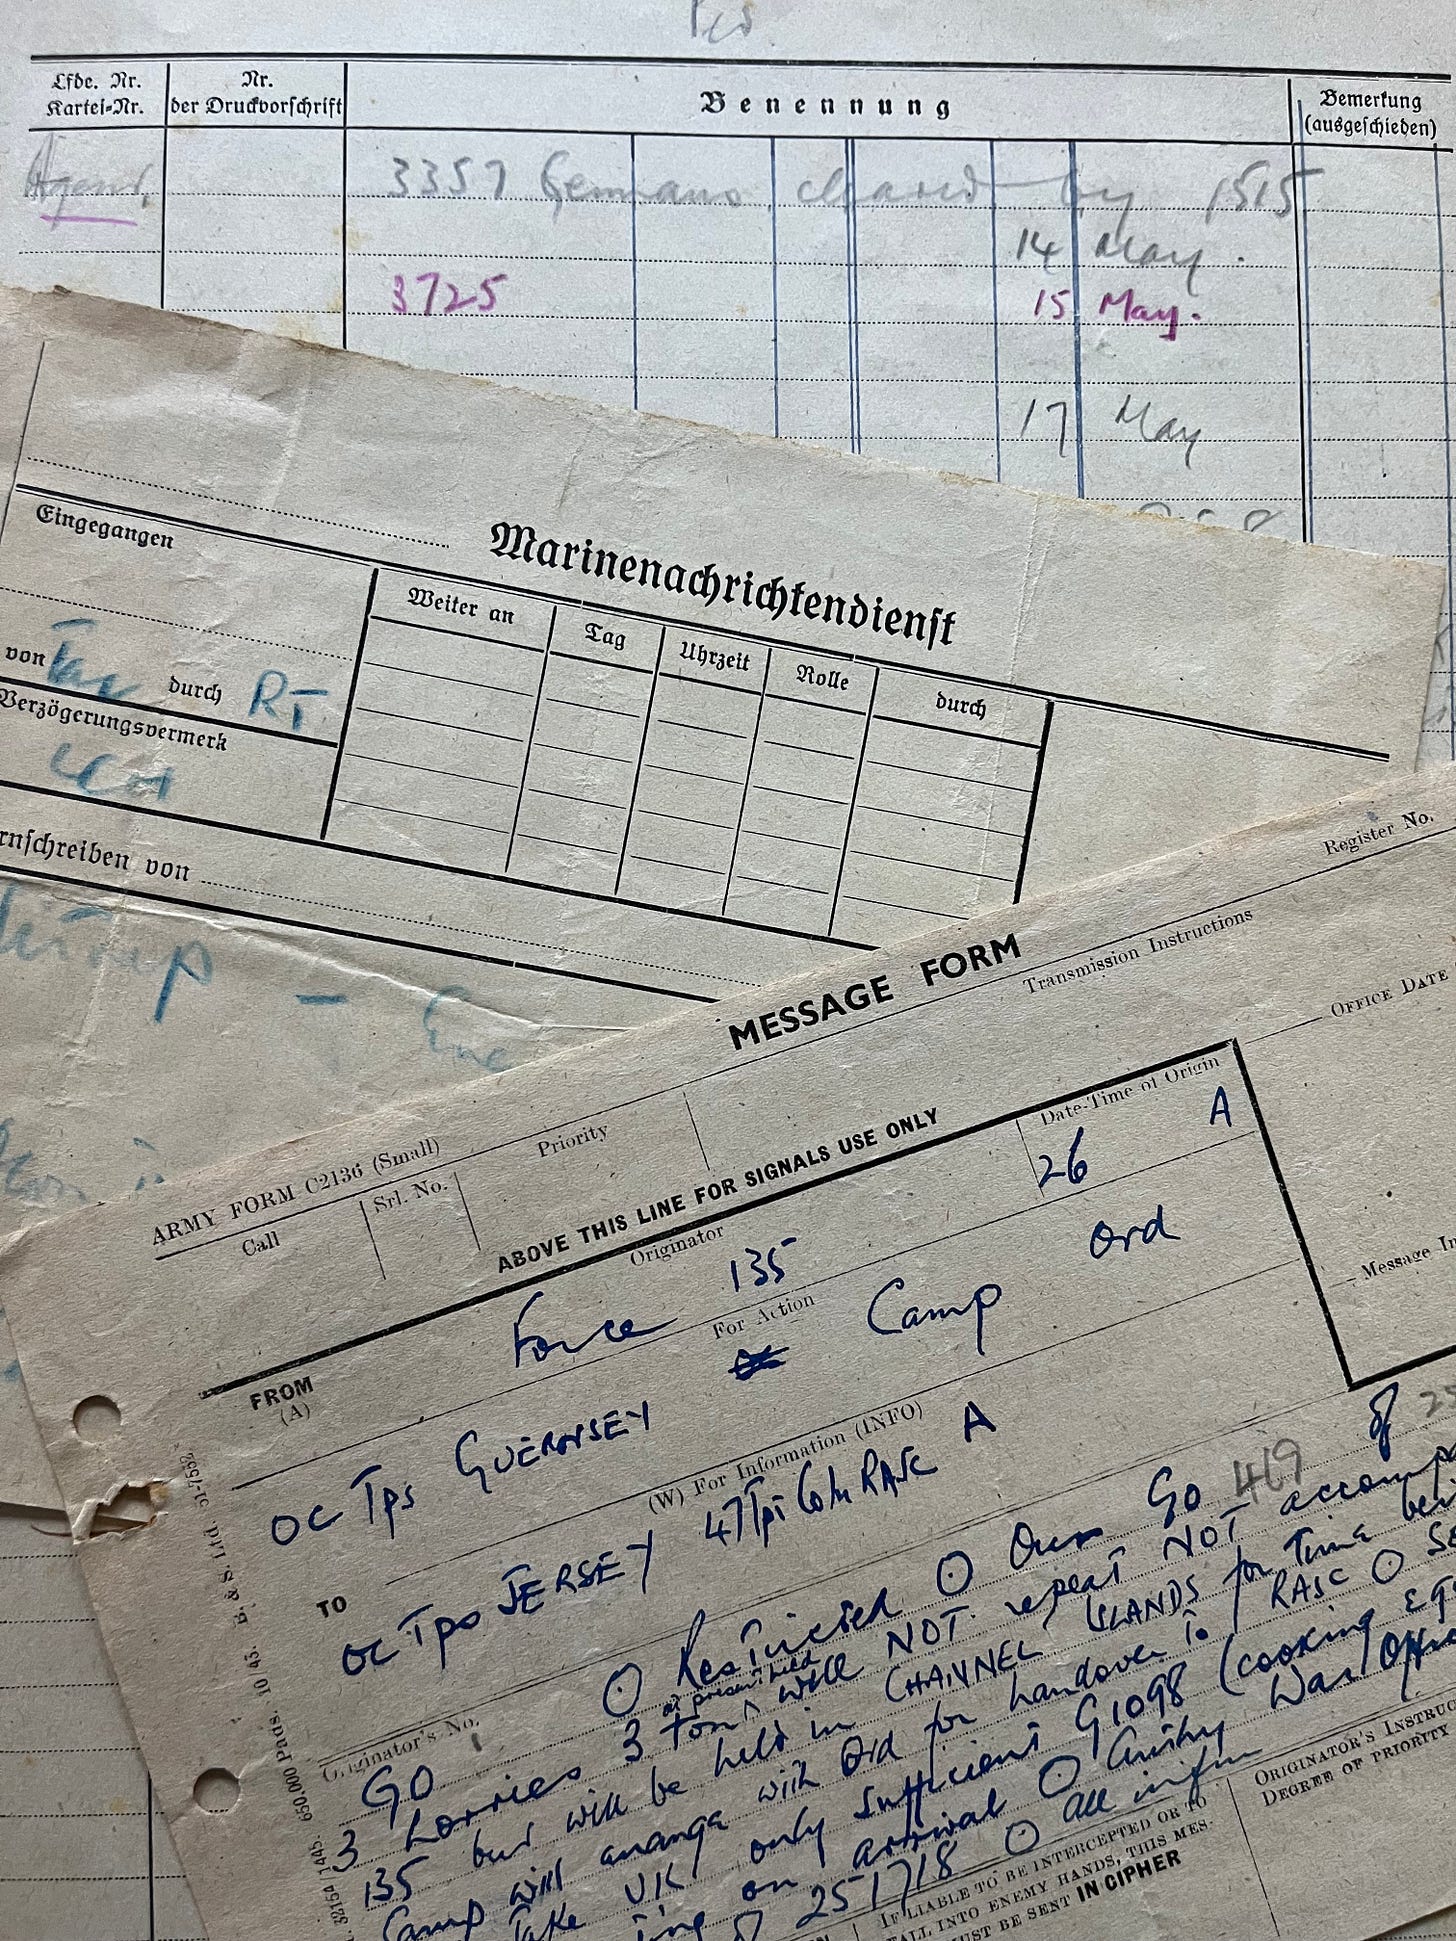 Lfde. Nr.
Kartei-Nr.
Nr.
der Druckvorschrift
Benennung
Bemerkung
(ausgeschieden)
3357 Germans cleared by 1515
14 May.
3725 15 May.
17 May
Marinenachrichtendienst
Eingegangen
von durch RT
Verzögerungsvermerk
rnschreiben von
Weiter an
Tag
Uhrzeit
Rolle
durch
MESSAGE FORM
Register No.
ARMY FORM C2136 (Small)
Call
Srl. No.
Priority
Transmission Instructions
ABOVE THIS LINE FOR SIGNALS USE ONLY
OFFICE DATE
FROM
(A)
Originator
Force 135
Date-Time of Origin
26 A
For Action
OC Tps GUERNSEY Camp Ord
TO
(W) For Information (INFO)
OC Tps JERSEY 47 Tpt Coln RASC A
Message In
Originator's No.
GO Restricted O Our GO 419 of
3 Lorries 3 ton at present held will NOT repeat NOT accomp
135 but will be held in CHANNEL ISLANDS for time bei
Camp will arrange with Ord for handover to RASC O
Take UK only sufficient G1098 (cooking
on arrival O War Office
of 251718 O all infm
IF LIABLE TO BE INTERCEPTED OR TO
FALL INTO ENEMY HANDS, THIS MES-
UST BE SENT IN CIPHER
ORIGINATOR'S INSTRUC
DEGREE OF PRIORITY
51-7552
32154 1445. 650,000 Pads. 10/43. B. & S. Ltd.